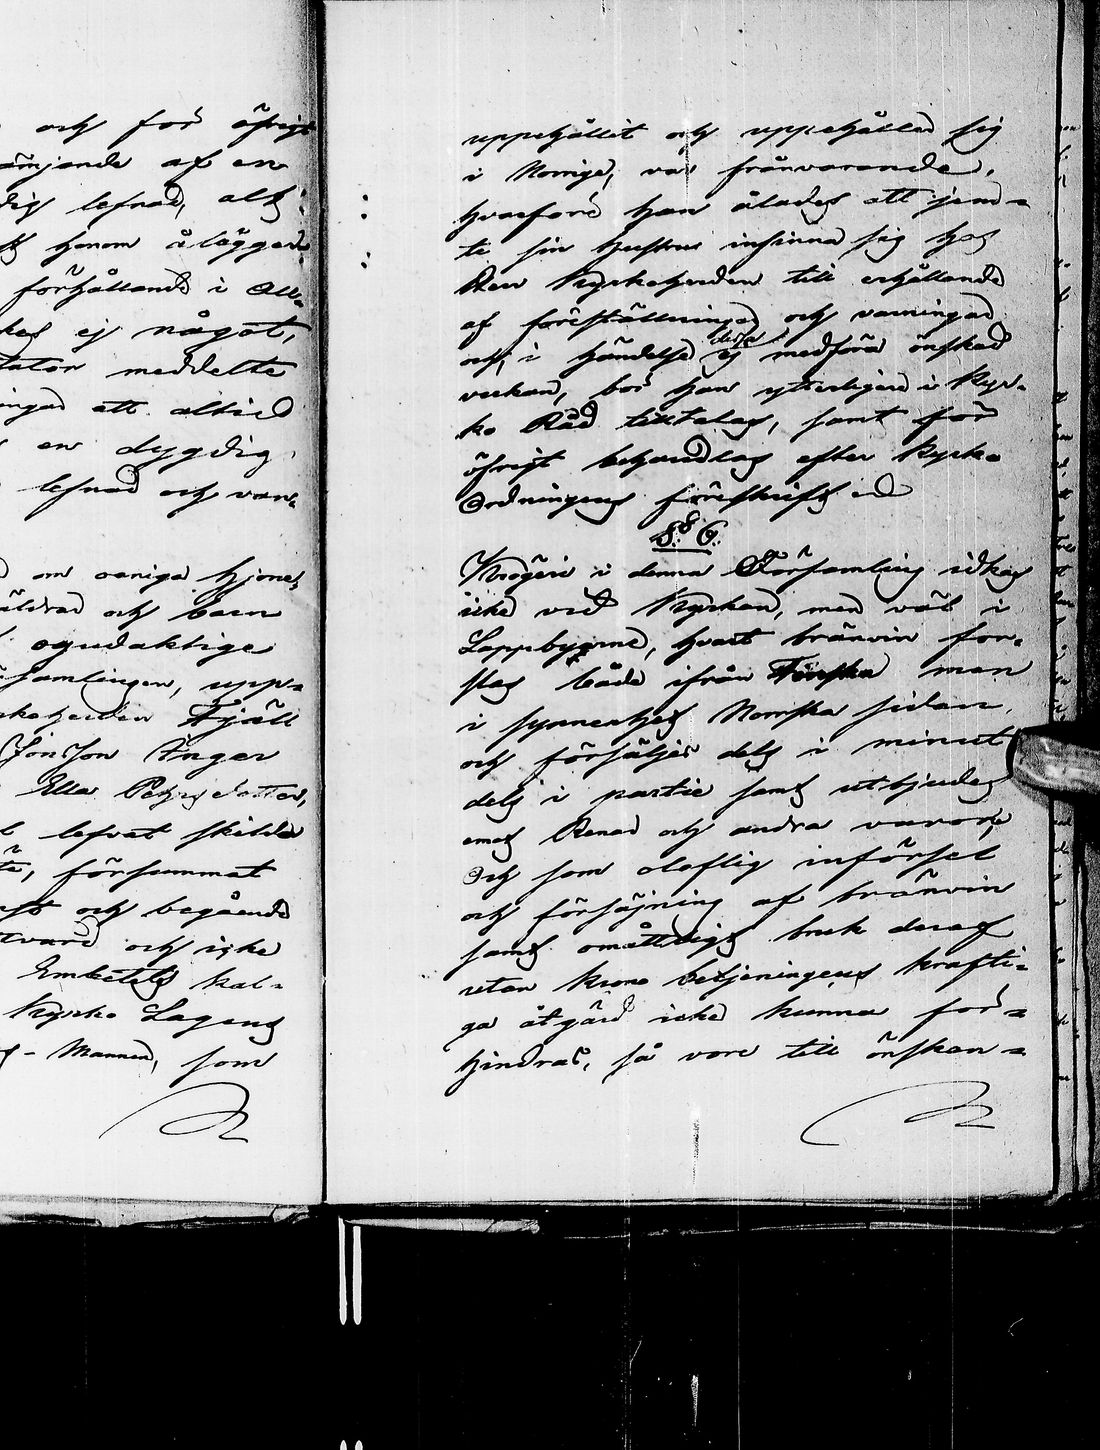 och för öfrigt
ämjande af en
dig lefnad, allt
honom ålägges
förhållande i
kes ej något,
tator meddelte
ingar att alltid
en dygdig
lefnad och van-
om oeniga hjones,
äldrar och barn
ogudaktige
samlingen, upp-
Fjäll
Jonsson Inger
Ella Pehrs dotter,
lefvat skilde
te, försummat
och begående
och icke
Embetets kal-
Kyrko Lagens
Mannen, som
uppehållit och uppehåller sig
i Norrige, var frånvarande,
hvarföre han ålades att jem-
te sin hustru infinna sig hos
Kyrkoherden till erhållande
af föreställningar och varningar
och, i händelse dessa ej medföra önskad
verkan, bör han ytterligare i Kyr-
ko Råd tilltalas, samt för
öfrigt behandlas efter Kyrko
Ordningens föreskrift
§ 6.
Krögeri i denna Församling idkas
icke vid Kyrkan, men väl i
Lappbyarne, hvart bränvin for-
slas både ifrån Finska men
i synnerhet Norrska sidan,
och försäljes dels i minut
dels i partie samt utbjudes
emot Renar och andra varor,
Och som oloflig införsel
och försäjning af bränvin
samt omåttligt bruk deraf
utan krono betjeningens krafti-
ga åtgärd icke kunna för-
hindras, så vore till önskan-